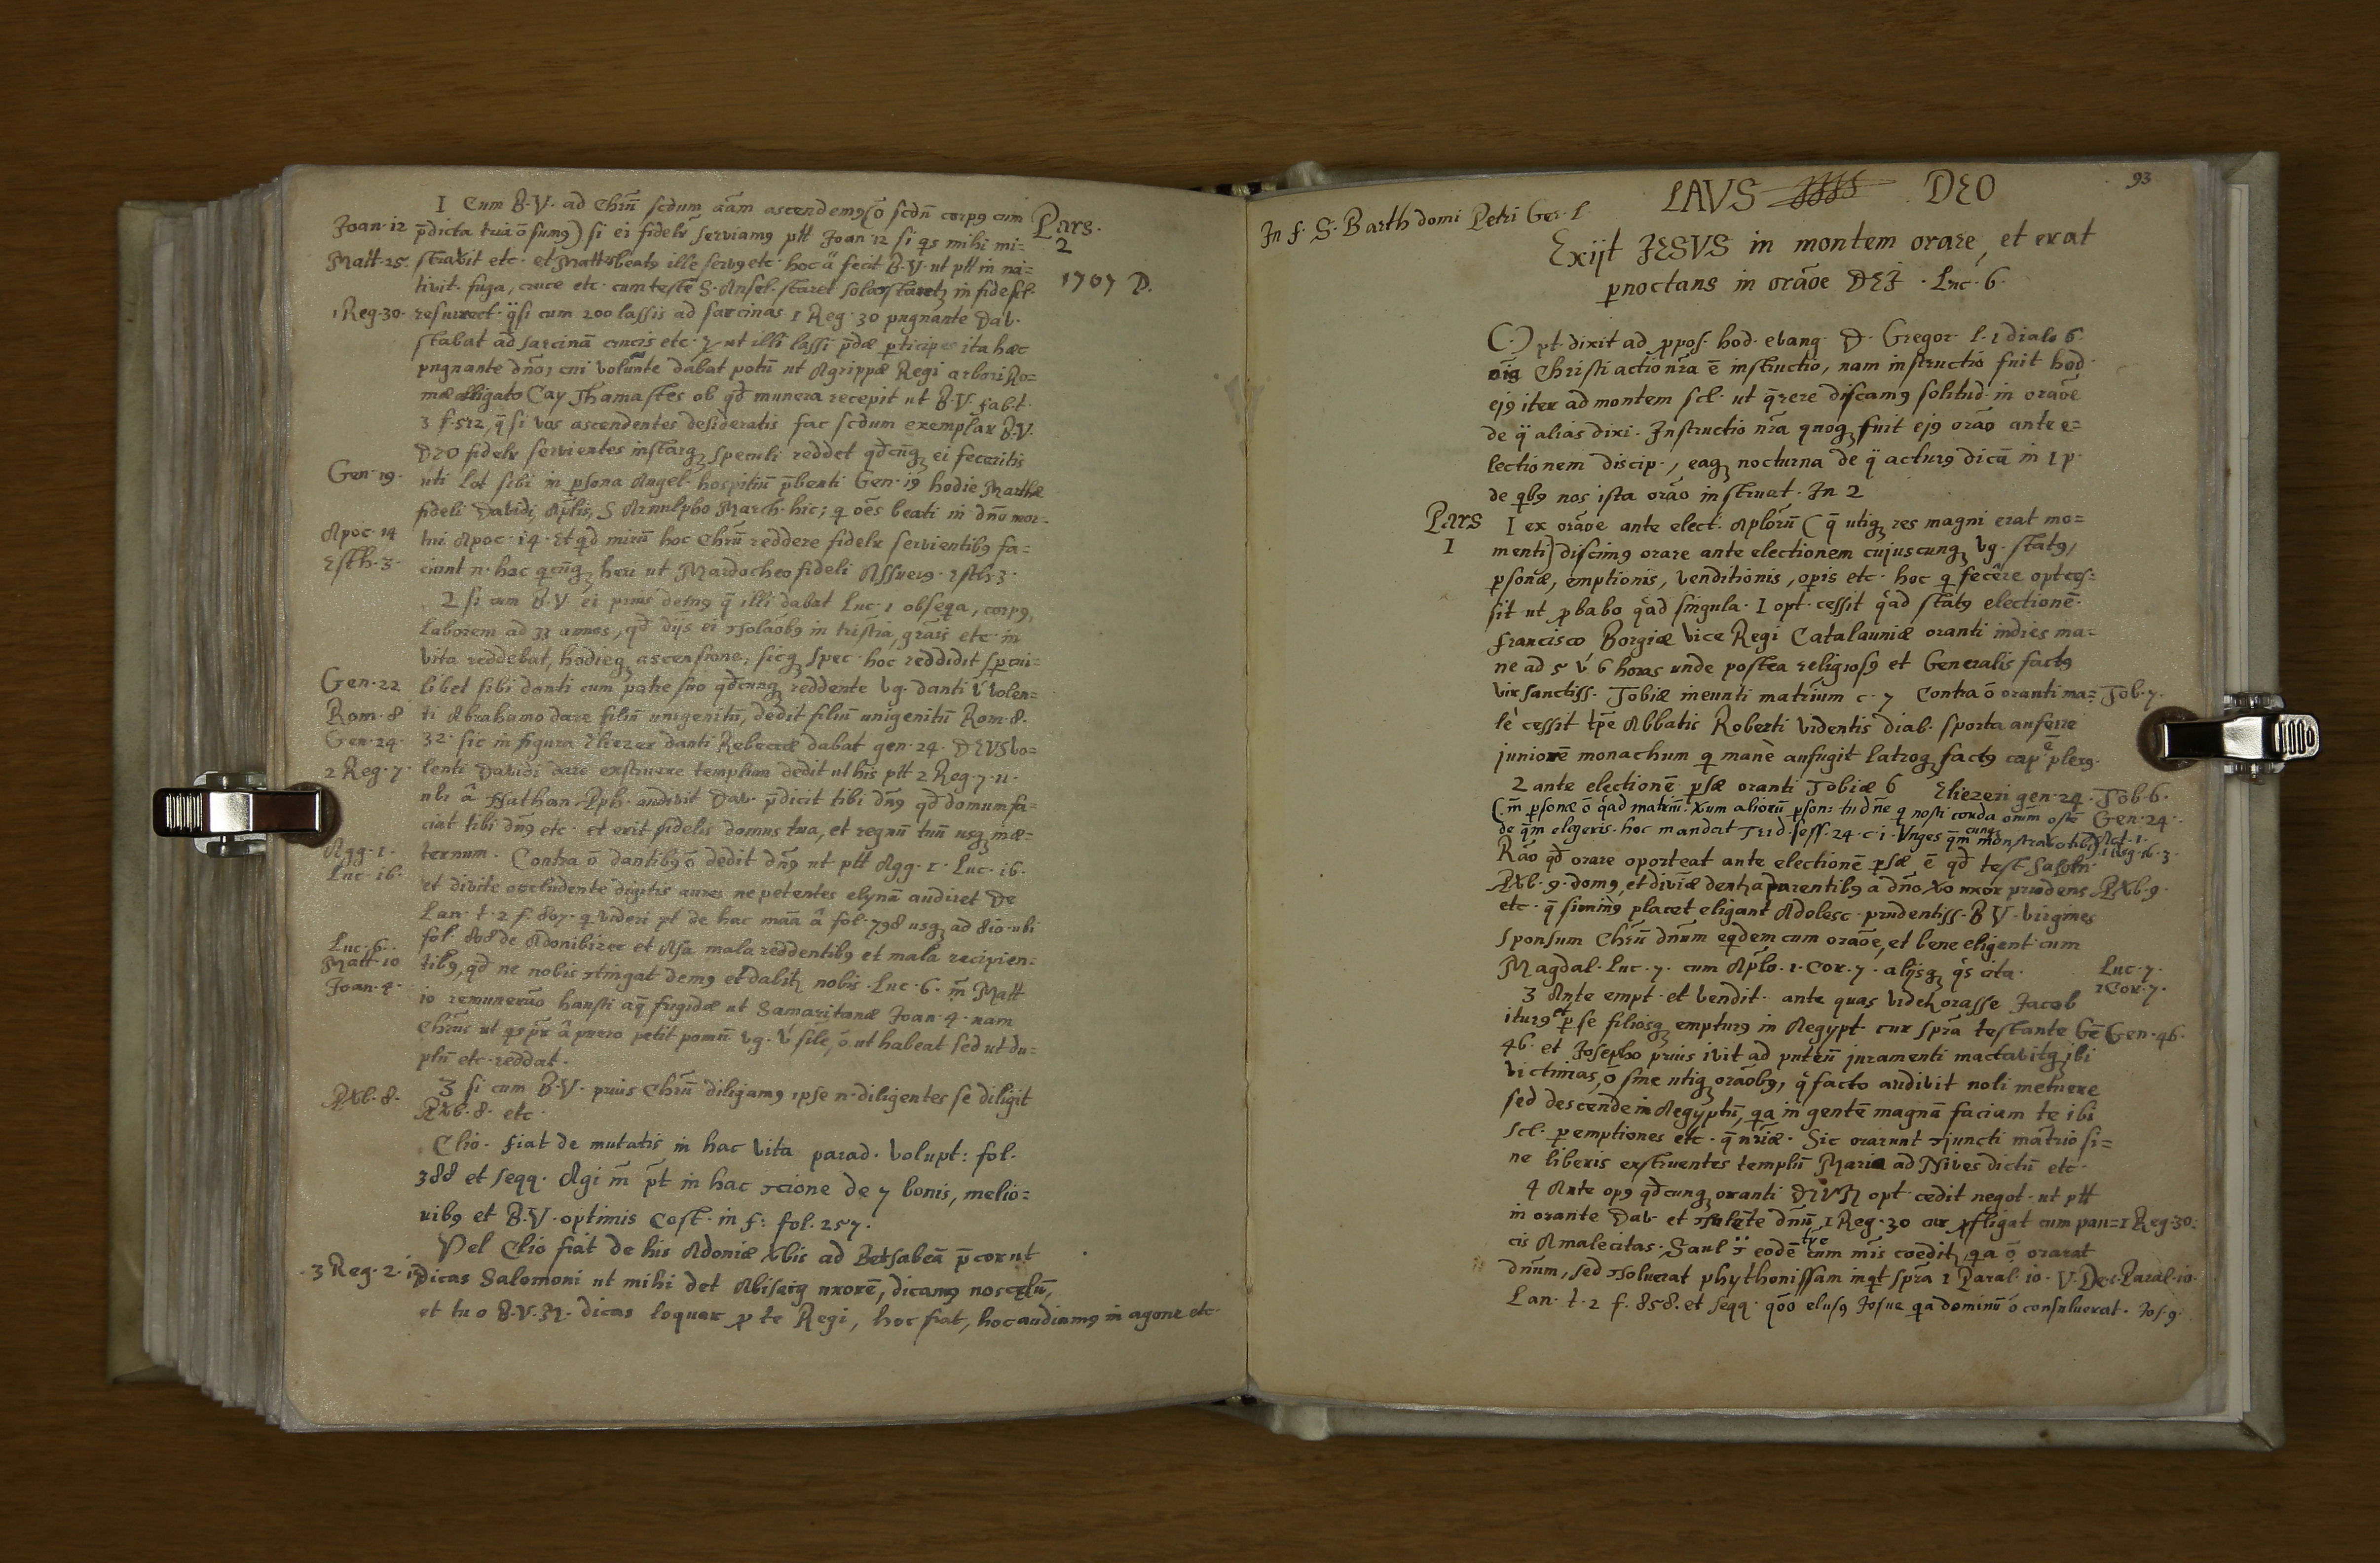 I Cum B.V. ad Chrm̄ scdum aām ascendemꝰ (ō scdū corpꝰ cum
Joan·12 p̄dicta tuā ō sumꝰ) si ei fidelr̄ serviamꝰ ptt Joan 12 si qs mihi mi= Pars· 2
Matt·25· strabit etc· et Matt· beatꝰ ille servꝰ etc· hoc ä fecit B.V. ut ptt in na=
tivit· fuga, cruce etc· cum teste S· Ansel· staret sola in fide scl· 1707 D.
1 Reg·30· resurrect· q̈si cum 200 lassis ad sarcinas 1 Reg·30 pugnante Dav·
stabat ad sarcinā crucis etc· ut illi lassi p̄dæ pticipes ita hæc
pugnante dn̄o, cui dabat potū ut Agrippæ Regi arbori Ro=
mæ alligato Cay Thamastes ob qđ munera recepit ut B.V. fab·t·
3 f·512, q̄ si vos ascendentes desideratis fac scdum exemplar B.V.
DEO fidelr̄ servientes instarqꝫ speculi reddet qđcūqꝫ ei feceritis
Gen·19· uti Lot sibi in psona Angel· hospitiū p̄benti Gen·19 hodie Marthæ
fideli Davidi, Aplis, S Arnulpho March· hic; q oēs beati in dn̄o mor=
Apoc·14 tui Apoc·14· Et qđ mirū hoc Chrm̄ reddere fidelr̄ servientibꝰ fa=
Esth·3· ciunt n· hæc qcūqꝫ heri ut Mardocheo fideli Assuerꝰ· Esth·3·
2 si cum B.V. ei prius demꝰ q̄ illi dabat Luc·1 obseqa, corpꝰ,
laborem ad 33 annos, qđ dijs ei ɔsolaōbꝰ in tristia, grāis etc· in
vita reddebat, hodieqꝫ ascensione, sicqꝫ spec· hoc reddidit
Gen·22 libet sibi danti cum patre suo qđcunqꝫ reddente vg· danti v́ volen=
Rom·8 ti Abrahamo dare filiū unigenitū, dedit filiū unigenitū Rom·8·
Gen·24· 32· sic in figura Eliezer danti Rebeccæ dabat gen·24· DEUS vo=
2 Reg·7· lenti Davidi dare exstruere templum dedit ut his ptt 2 Reg·7·11·
ubi â Nathan Pph· audivit Dav· p̄dicit tibi dn̄ꝰ qđ domum fa=
ciat tibi dn̄ꝰ etc· et erit fidelis domus tua, et regnū tuū usqꝫ in æ=
Agg·1· ternum· Contra ō dantibꝰ ō dedit dn̄ꝰ ut ptt Agg·1· Luc·16·
Luc·16· et divite occludente digitis aures ne petentes elynā audiret De
Lan·t·2 f·867· q videri pt de hac māa â fol·798 usqꝫ ad 810· ubi
fol· 808 de Adonibizec et Asa mala reddentibꝰ et mala recipien=
Luc·6· tibꝰ, qđ ne nobis ɔtingat demꝰ et dabit nobis· Luc·6· m̄ Matt
Matt·10 10 remuneraō hausti aq̄ frigidæ ut Samaritanæ Joan·4· nam
Joan·4· Chrūs ut qs pr̄ â puero petit pomū vg· v́ sile, ō ut habeat sed ut du=
plū etc· reddat·
3 si cum B.V. prius Chrm̄ diligamꝰ ipse n· diligentes se diligit
Pxb·8· Pxb·8· etc·
Clio· fiat de mutatis in hac vita parad· volupt: fol·
388 et seqq· Agi m̄ pt in hac ɔcione de 7 bonis, melio=
ribꝰ et B.V. optimis Cost· in f: fol·257·
Vel Clio fiat de his Adoniæ xbis ad Betsabeā p̄corut
3 Reg·2· 17 dicas Salomoni ut mihi det Abisaig uxorē, dicamꝰ nos cælū,
et tu o B.V.M. dicas loquar p te Regi, hoc fiat, hoc audiamꝰ in agone etc·
93
LAVS DEO
In f· S· Barth domi Petri Ger·l
Exijt JESVS in montem orare, et erat
pnoctans in orāoe DEJ · Luc·6·
(·) pt· dixit ad ppos· hod· evang· D· Gregor· l·1 dialo 6·
oīa Christi actio nr̄a ē instructio, nam instructio fuit hod
ejꝰ iter ad montem scl· ut q̄rere discamꝰ solitud· in orāoe
de q̈ alias dixi· Instructio nr̄a quoqꝫ fuit ejꝰ orāo ante e=
lectionem discip·, eaqꝫ nocturna de q̈ acturꝰ dicā in 1 p·
de qbꝰ nos ista orāo instruat· In 2
Pars 1 I ex orāoe ante elect· Aplorū (q̄ utiqꝫ res magni erat mo=
menti) discimꝰ orare ante electionem cujuscunqꝫ vg· statꝰ,
psonæ, emptionis, venditionis, opis etc· hoc q fecêre opt ces=
sit ut pbabo q̀ad singula· I opt· cessit q̀ad statꝰ electionē·
Francisco Borgiæ Vice Regi Catalauniæ oranti indies ma=
ne ad 5 v́ 6 horas unde postea religiosꝰ et Generalis factꝰ
vir sanctiss· Tobiæ ineunti matrium c·7 Contra ō oranti ma= Tob·7·
lè cessit tpe Abbatis Roberti videntis diab· sporta auferre
juniorē monachum q manè aufugit latroqꝫ factꝰ cap· ē plexꝰ·
2 ante electionē psæ oranti Tobiæ 6 Eliezeri gen·24· Tob·6·
(m̄ psonæ ō q̀ad matriū· xum aliorū pson: tu dn̄e q nosti corda oīum oste Gen·24·
de q̄m elegeris· hoc mandat Trid·sess·24·c·1· Vnges q̄mcunqꝫ mōnstravo tibi) Act·1· 1 Reg·16·3·
Rāo qđ orare oporteat ante electionē psæ ē qđ test· Salom·
Pxb·9· domꝰ, et divīæ dentʳ a parentibꝰ a dn̄o xo uxor prudens Pxb·9·
etc· q̄ si unīꝰ placet eligant Adolesc· prudentiss· B V· virgines
sponsum Chrm̄ dnūm eqdem cum orāoe, et bene eligent cum
Magdal· Luc·7· cum Aplo·1·Cor·7· alijsqꝫ q̀s cita· Luc·7·
3 Ante empt· et vendit· ante quas videt orasse Jacob 1 Cor·7·
iturꝰ et p se filiosqꝫ empturꝰ in Aegypt· cur sprā testante Gē Gen·46·
46· et Josepho prius ivit ad puteū juramenti mactavitqꝫ ibi
victimas, ō sine utiqꝫ orāobꝰ, q̀ facto audivit noli metuere
sed descende in Aegyptū, qa in gentē magnā faciam te ibi
scl· p emptiones etc· Sic orarunt ɔjuncti matrio si=
ne liberis exstruentes templū Mariæ ad Nives dictū etc·
4 Ante opꝰ qđcunqꝫ oranti DEVM opt cedit negot· ut ptt
in orante Dav· et ɔsulēte dn̄ū 1 Reg·30 cur pfligat cum pau= 1 Reg·30·
cis Amalecitas· Saul ɔ̈ eodē tpe cum mīs coedit, qa ō orarat
dnūm, sed ɔsoluerat phythonissam inqt sprā 1 Paral·10· V· De 1·Paral·10·
Lan· t·2 f·858· et seqq· qōo elusꝰ Josue qa dominū ō consuluerat· Jos·9·